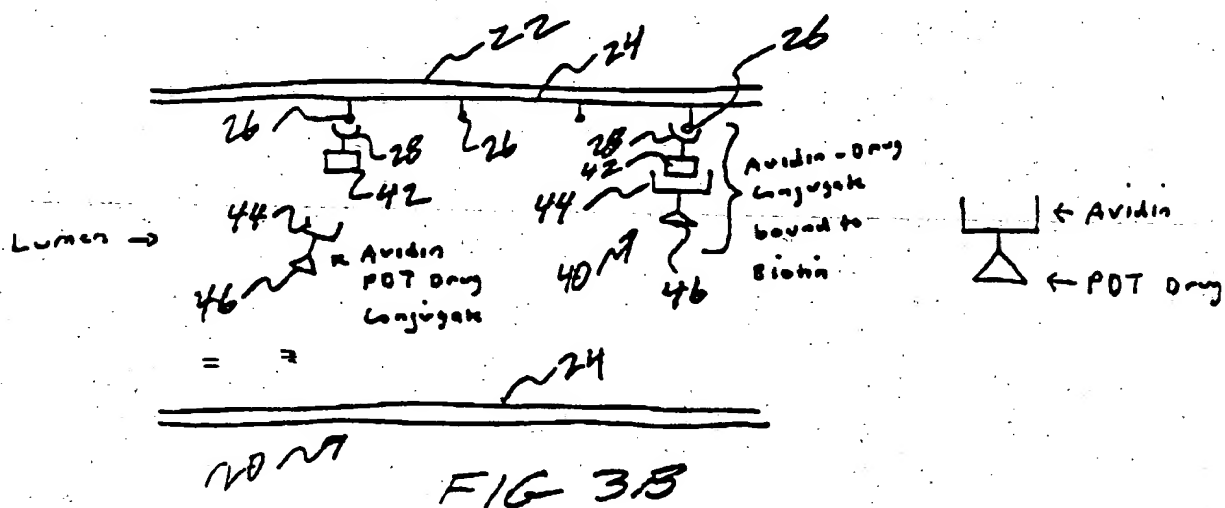 22
24
26
26
28
26
28
42
42
44
44
Avidin-Drug
Conjugate
bound to
Biotin
← Avidin
← PDT Drug
Lumen →
Avidin
PDT Drug
Conjugate
46
40
46
24
20
FIG 3B